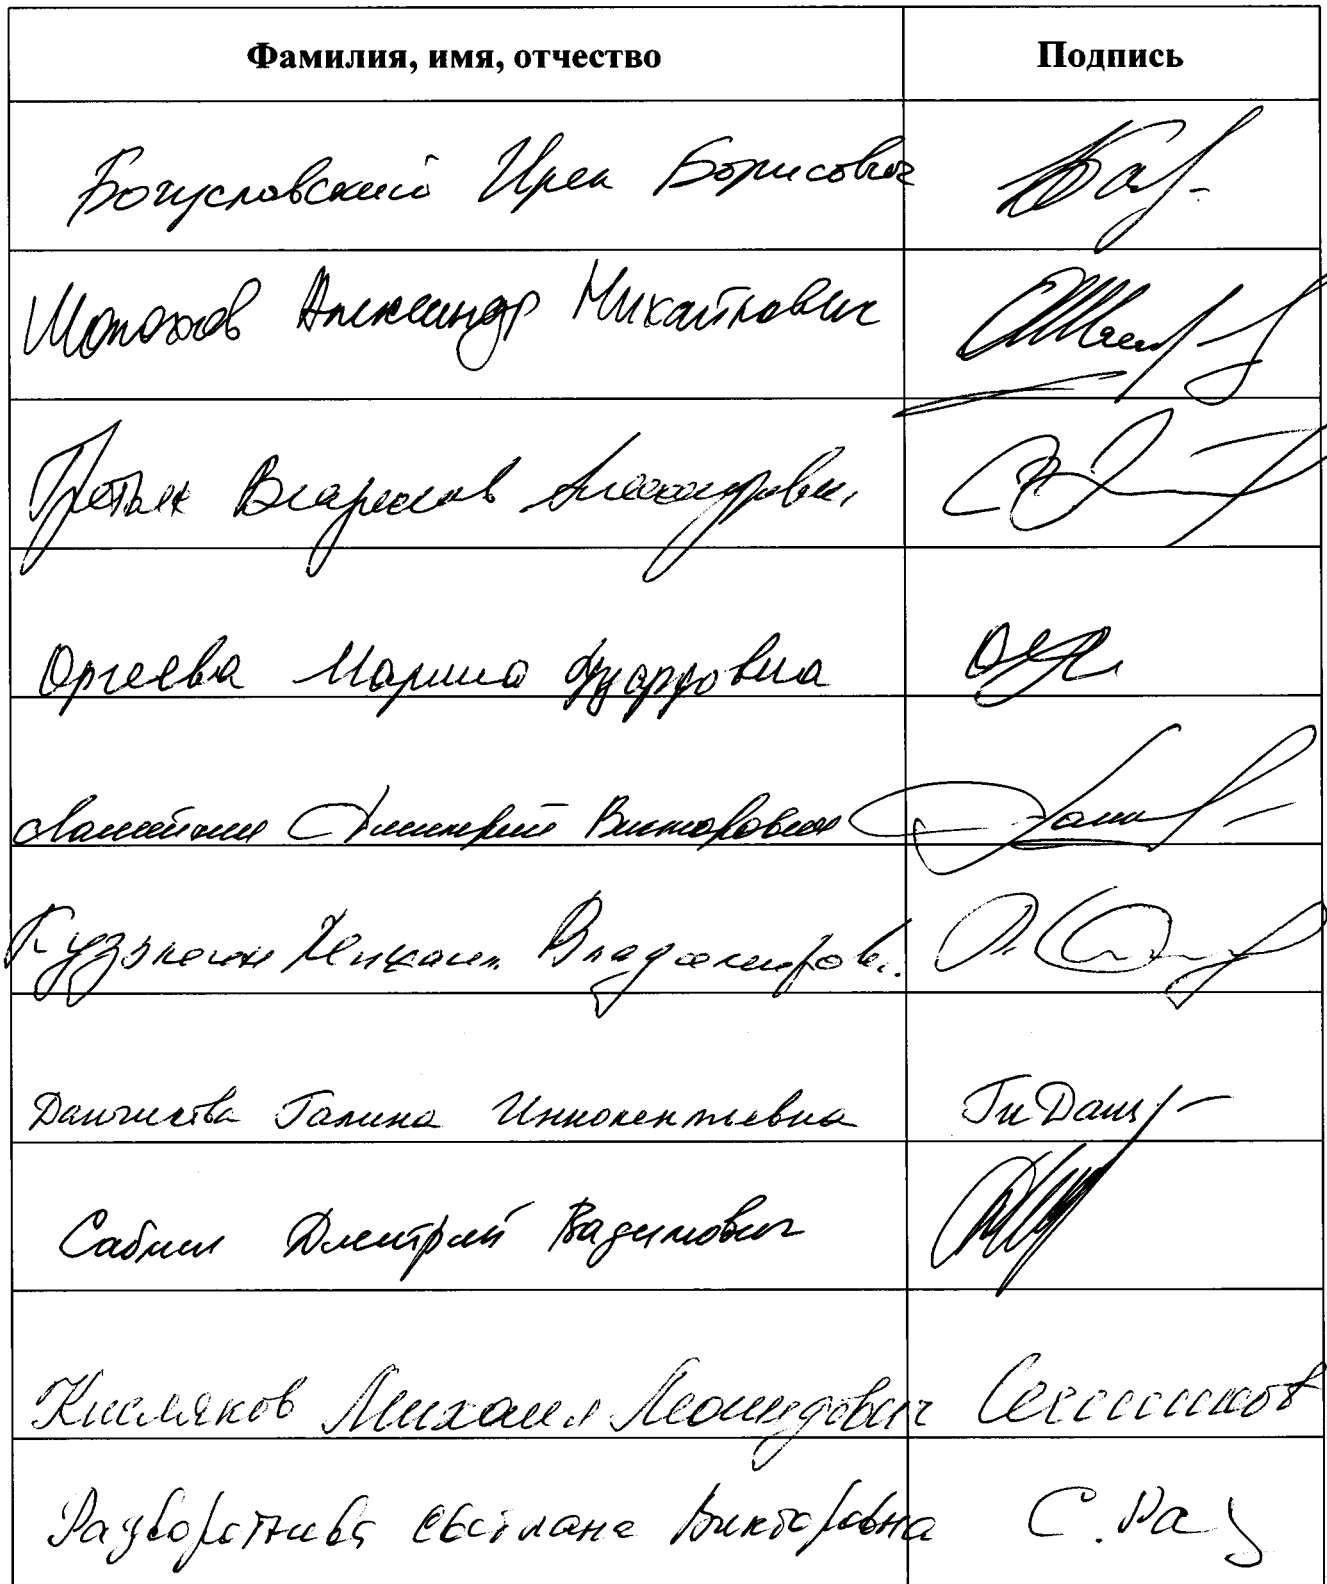 Фамилия, имя, отчество Подпись
Богуславский Ирек Борисович
Шолохов Александр Михайлович
Третьяк Владислав Александрович
Оргеева Марина Эдуардовна
Ламейкин Дмитрий Викторович
Кузьмин Михаил Владимиров.
Данчикова Галина Иннокентьевна
Саблин Дмитрий Вадимович
Кисляков Михаил Леонидович
Разворотнева Светлана Викторовна С. Раз